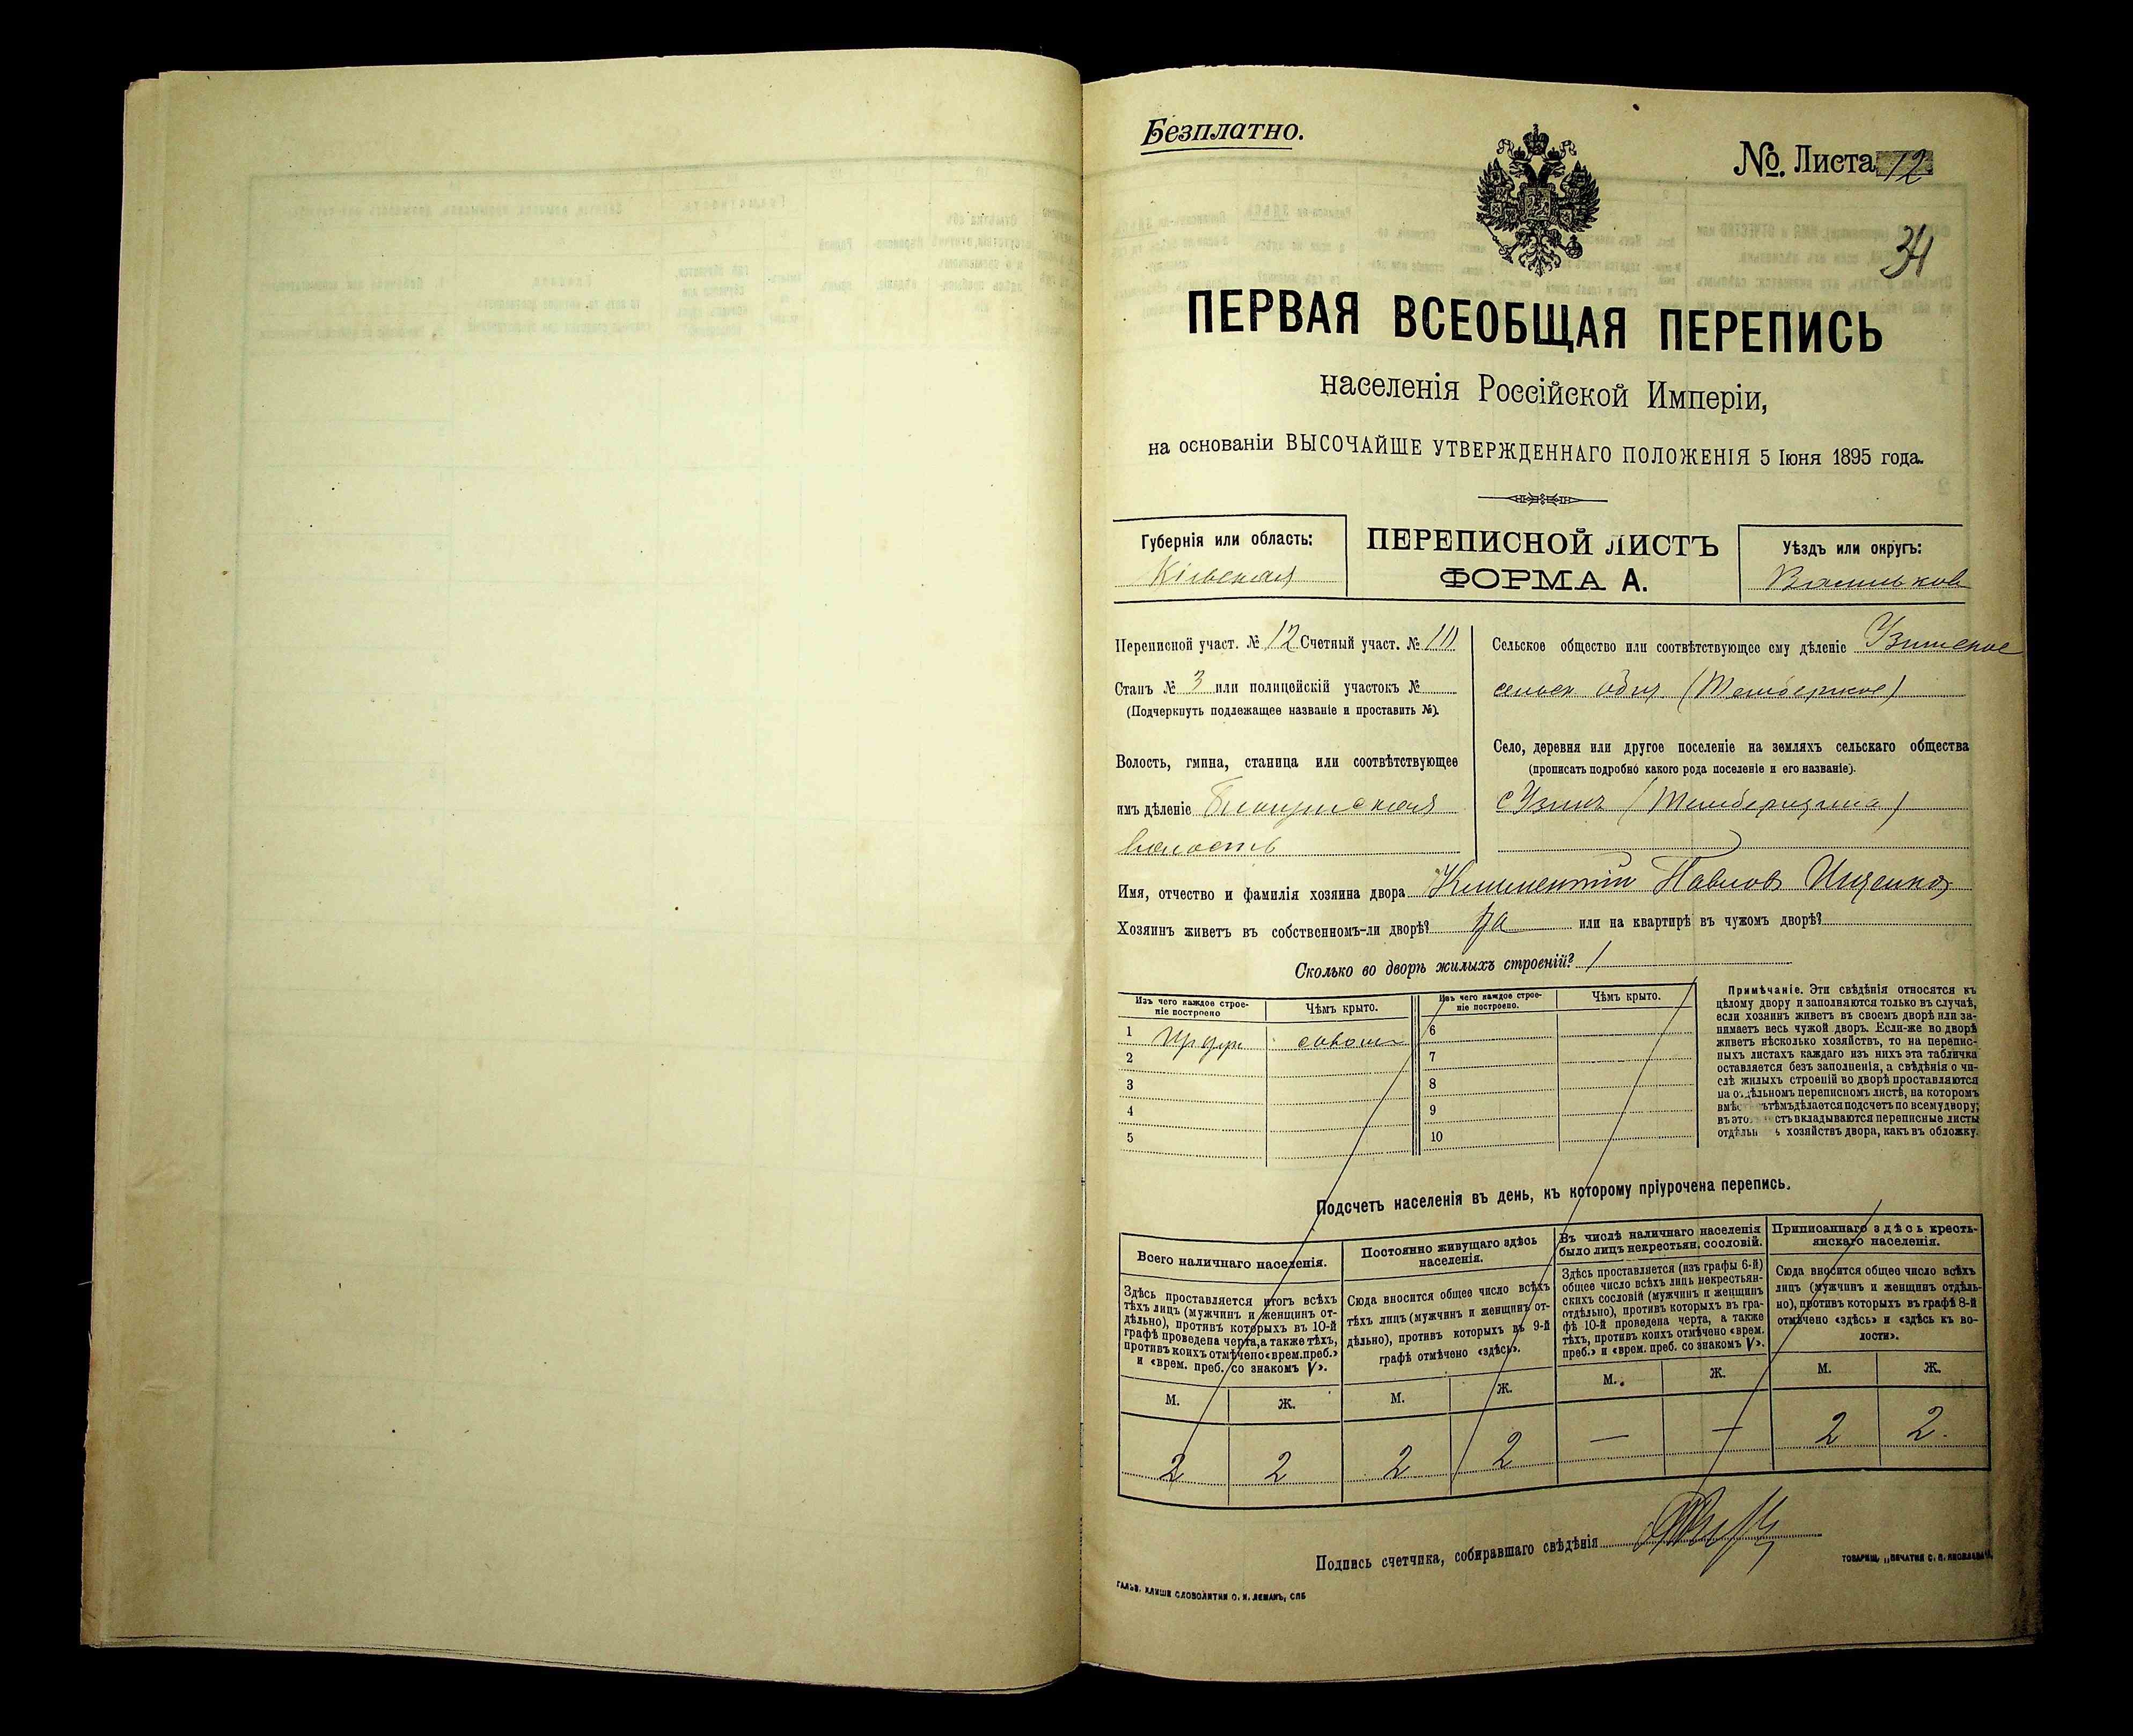 Безплатно.
№ Листа 12
34
ПЕРВАЯ ВСЕОБЩАЯ ПЕРЕПИСЬ
населенія Россійской Имперіи,
на основаніи ВЫСОЧАЙШЕ УТВЕРЖДЕННАГО ПОЛОЖЕНІЯ 5 Іюня 1895 года.
Губернія или область:
Кіевская
ПЕРЕПИСНОЙ ЛИСТЪ
ФОРМА А.
Уѣздъ или округъ:
Васильков
Переписной участ. № 12 Счетный участ. №
Станъ № 3 или полицейскій участокъ №
(Подчеркнуть подлежащее названіе и проставить №).
Волость, гмина, станица или соотвѣтствующее
имъ дѣленіе
волость
Сельское общество или соотвѣтствующее ему дѣленіе Узинское
сельск общ
Село, деревня или другое поселеніе на земляхъ сельскаго общества
(прописать подробно какого рода поселеніе и его названіе).
с Узинъ
Имя, отчество и фамилія хозяина двора Климентій Павлов Ищенко
Хозяинъ живетъ въ собственномъ-ли дворѣ? да или на квартирѣ въ чужомъ дворѣ?
Сколько во дворѣ жилыхъ строеній? 1
Изъ чего каждое строеніе построено
Чѣмъ крыто.
Изъ чего каждое строеніе построено.
Чѣмъ крыто.
1 солом
2
3
4
5
6
7
8
9
10
Примѣчаніе. Эти свѣдѣнія относятся къ
цѣлому двору и заполняются только въ случаѣ,
если хозяинъ живетъ въ своемъ дворѣ или за-
нимаетъ весь чужой дворъ. Если-же во дворѣ
живетъ нѣсколько хозяйствъ, то на перепис-
ныхъ листахъ каждаго изъ нихъ эта табличка
оставляется безъ заполненія, а свѣдѣнія о чи-
слѣ жилыхъ строеній во дворѣ проставляются
на отдѣльномъ переписномъ листѣ, на которомъ
дѣлается подсчетъ по всему двору;
вкладываются переписные листы
хозяйствъ двора, какъ въ обложку.
Подсчетъ населенія въ день, къ которому пріурочена перепись.
Всего наличнаго населенія.
Здѣсь проставляется итогъ всѣхъ
тѣхъ лицъ (мужчинъ и женщинъ от-
дѣльно), противъ которыхъ въ 10-й
графѣ проведена черта, а также тѣхъ,
противъ коихъ отмѣчено «врем. преб.»
и «врем. преб. со знакомъ V».
Постоянно живущаго здѣсь
населенія.
Сюда вносится общее число всѣхъ
тѣхъ лицъ (мужчинъ и женщинъ от-
дѣльно), противъ которыхъ въ 9-й
графѣ отмѣчено «здѣсь».
Въ числѣ наличнаго населенія
было лицъ некрестьян. сословій.
Здѣсь проставляется (изъ графы 6-й)
общее число всѣхъ лицъ некрестьян-
скихъ сословій (мужчинъ и женщинъ
отдѣльно), противъ которыхъ въ гра-
фѣ 10-й проведена черта, а также
тѣхъ, противъ коихъ отмѣчено «врем.
преб.» и «врем. преб. со знакомъ V».
Приписаннаго здѣсь кресть-
янскаго населенія.
Сюда вносится общее число всѣхъ
лицъ (мужчинъ и женщинъ отдѣль-
но), противъ которыхъ въ графѣ 8-й
отмѣчено «здѣсь» и «здѣсь къ во-
лости».
М. Ж. М. Ж. М. Ж. М. Ж.
2 2 2 2 — — 2 2.
Подпись счетчика, собиравшаго свѣдѣнія
ГАЛЬВ. КЛИШЕ СЛОВОЛИТНИ О. И. ЛЕМАНЪ, СПБ
ТОВАРИЩ. „ПЕЧАТНЯ С. П. ЯКОВЛЕВА“